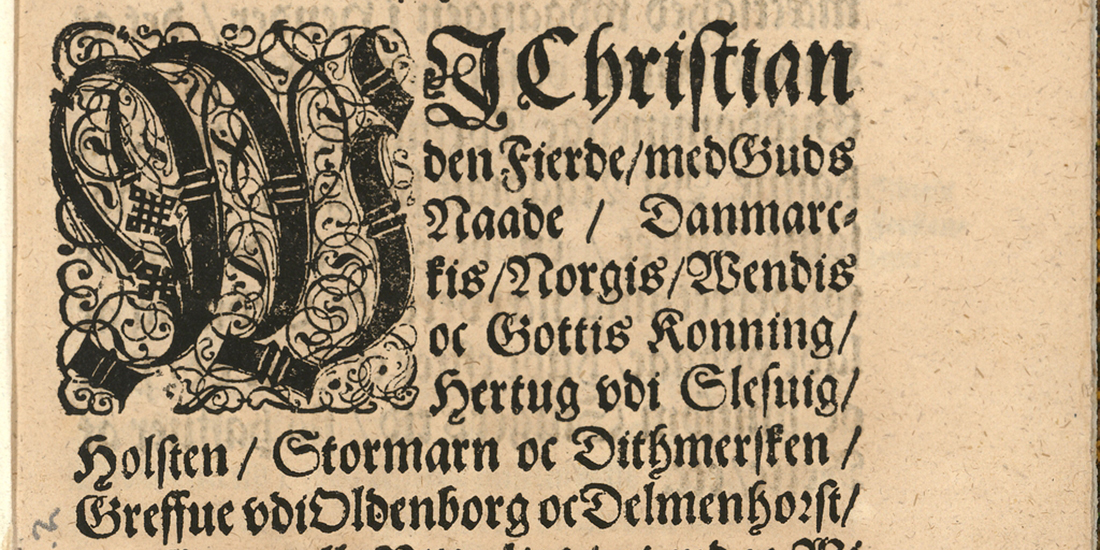 WJ Christian
den Fierde/med Guds
Naade / Danmarc-
kis/Norgis/Wendis
oc Gottis Konning/
Hertug vdi Slesuig/
Holsten / Stormarn oc Dithmersken /
Greffue vdi Oldenborg oc Delmenhorst/